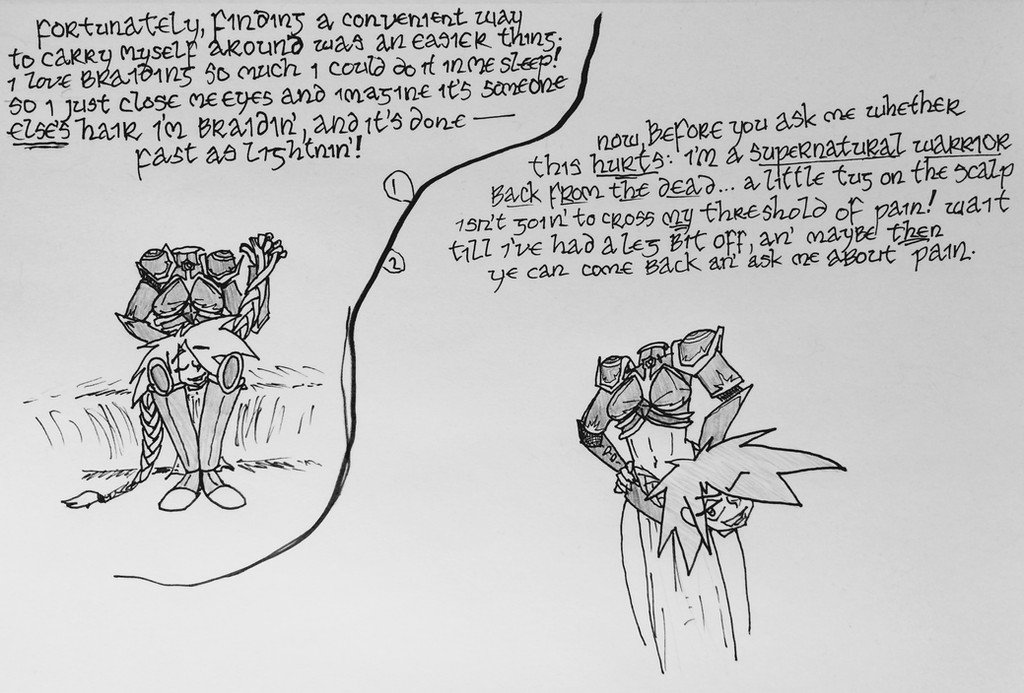 Fortunately, finding a convenient way
to carry myself around was an easier thing.
i love braiding so much i could do it in me sleep!
so i just close me eyes and imagine it's someone
else's hair i'm braidin', and it's done —
fast as lightnin'!
1
2
now, before you ask me whether
this hurts: i'm a supernatural warrior
back from the dead... a little tug on the scalp
isn't goin' to cross my threshold of pain! wait
till i've had a leg bit off, an' maybe then
ye can come back an' ask me about pain.